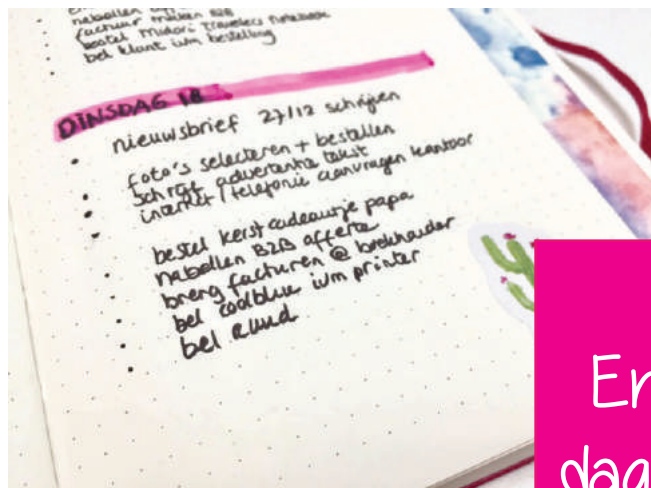 nabellen
factuur maken B2B
bestel Midori Travelers Notebook
bel klant ivm bestelling
DINSDAG 18
nieuwsbrief 27/12 schrijven
foto's selecteren + bestellen
schrijf advertentie tekst
internet / telefonie aanvragen kantoor
bestel kerstcadeautje papa
nabellen B2B offerte
breng facturen @ boekhouder
bel coolblue ivm printer
bel Ruud
En
dag